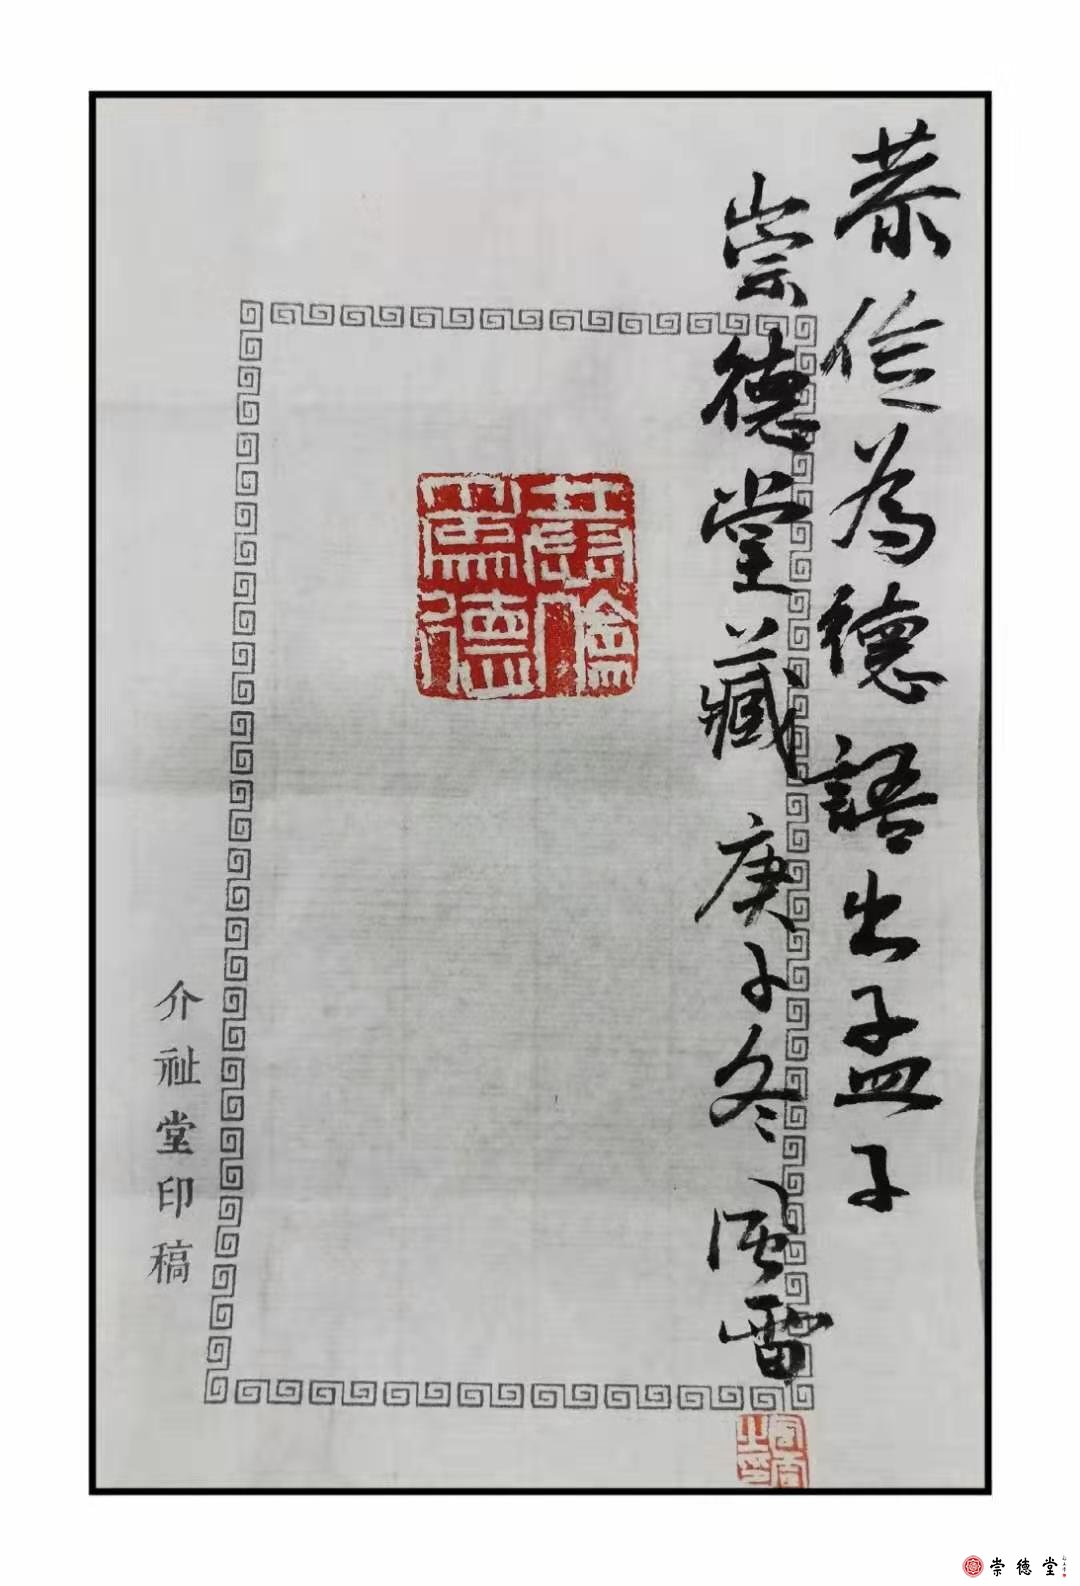 恭俭為德語出孟子
崇德堂藏 庚子冬 雷
恭儉
為德
介祉堂印稿
崇德堂